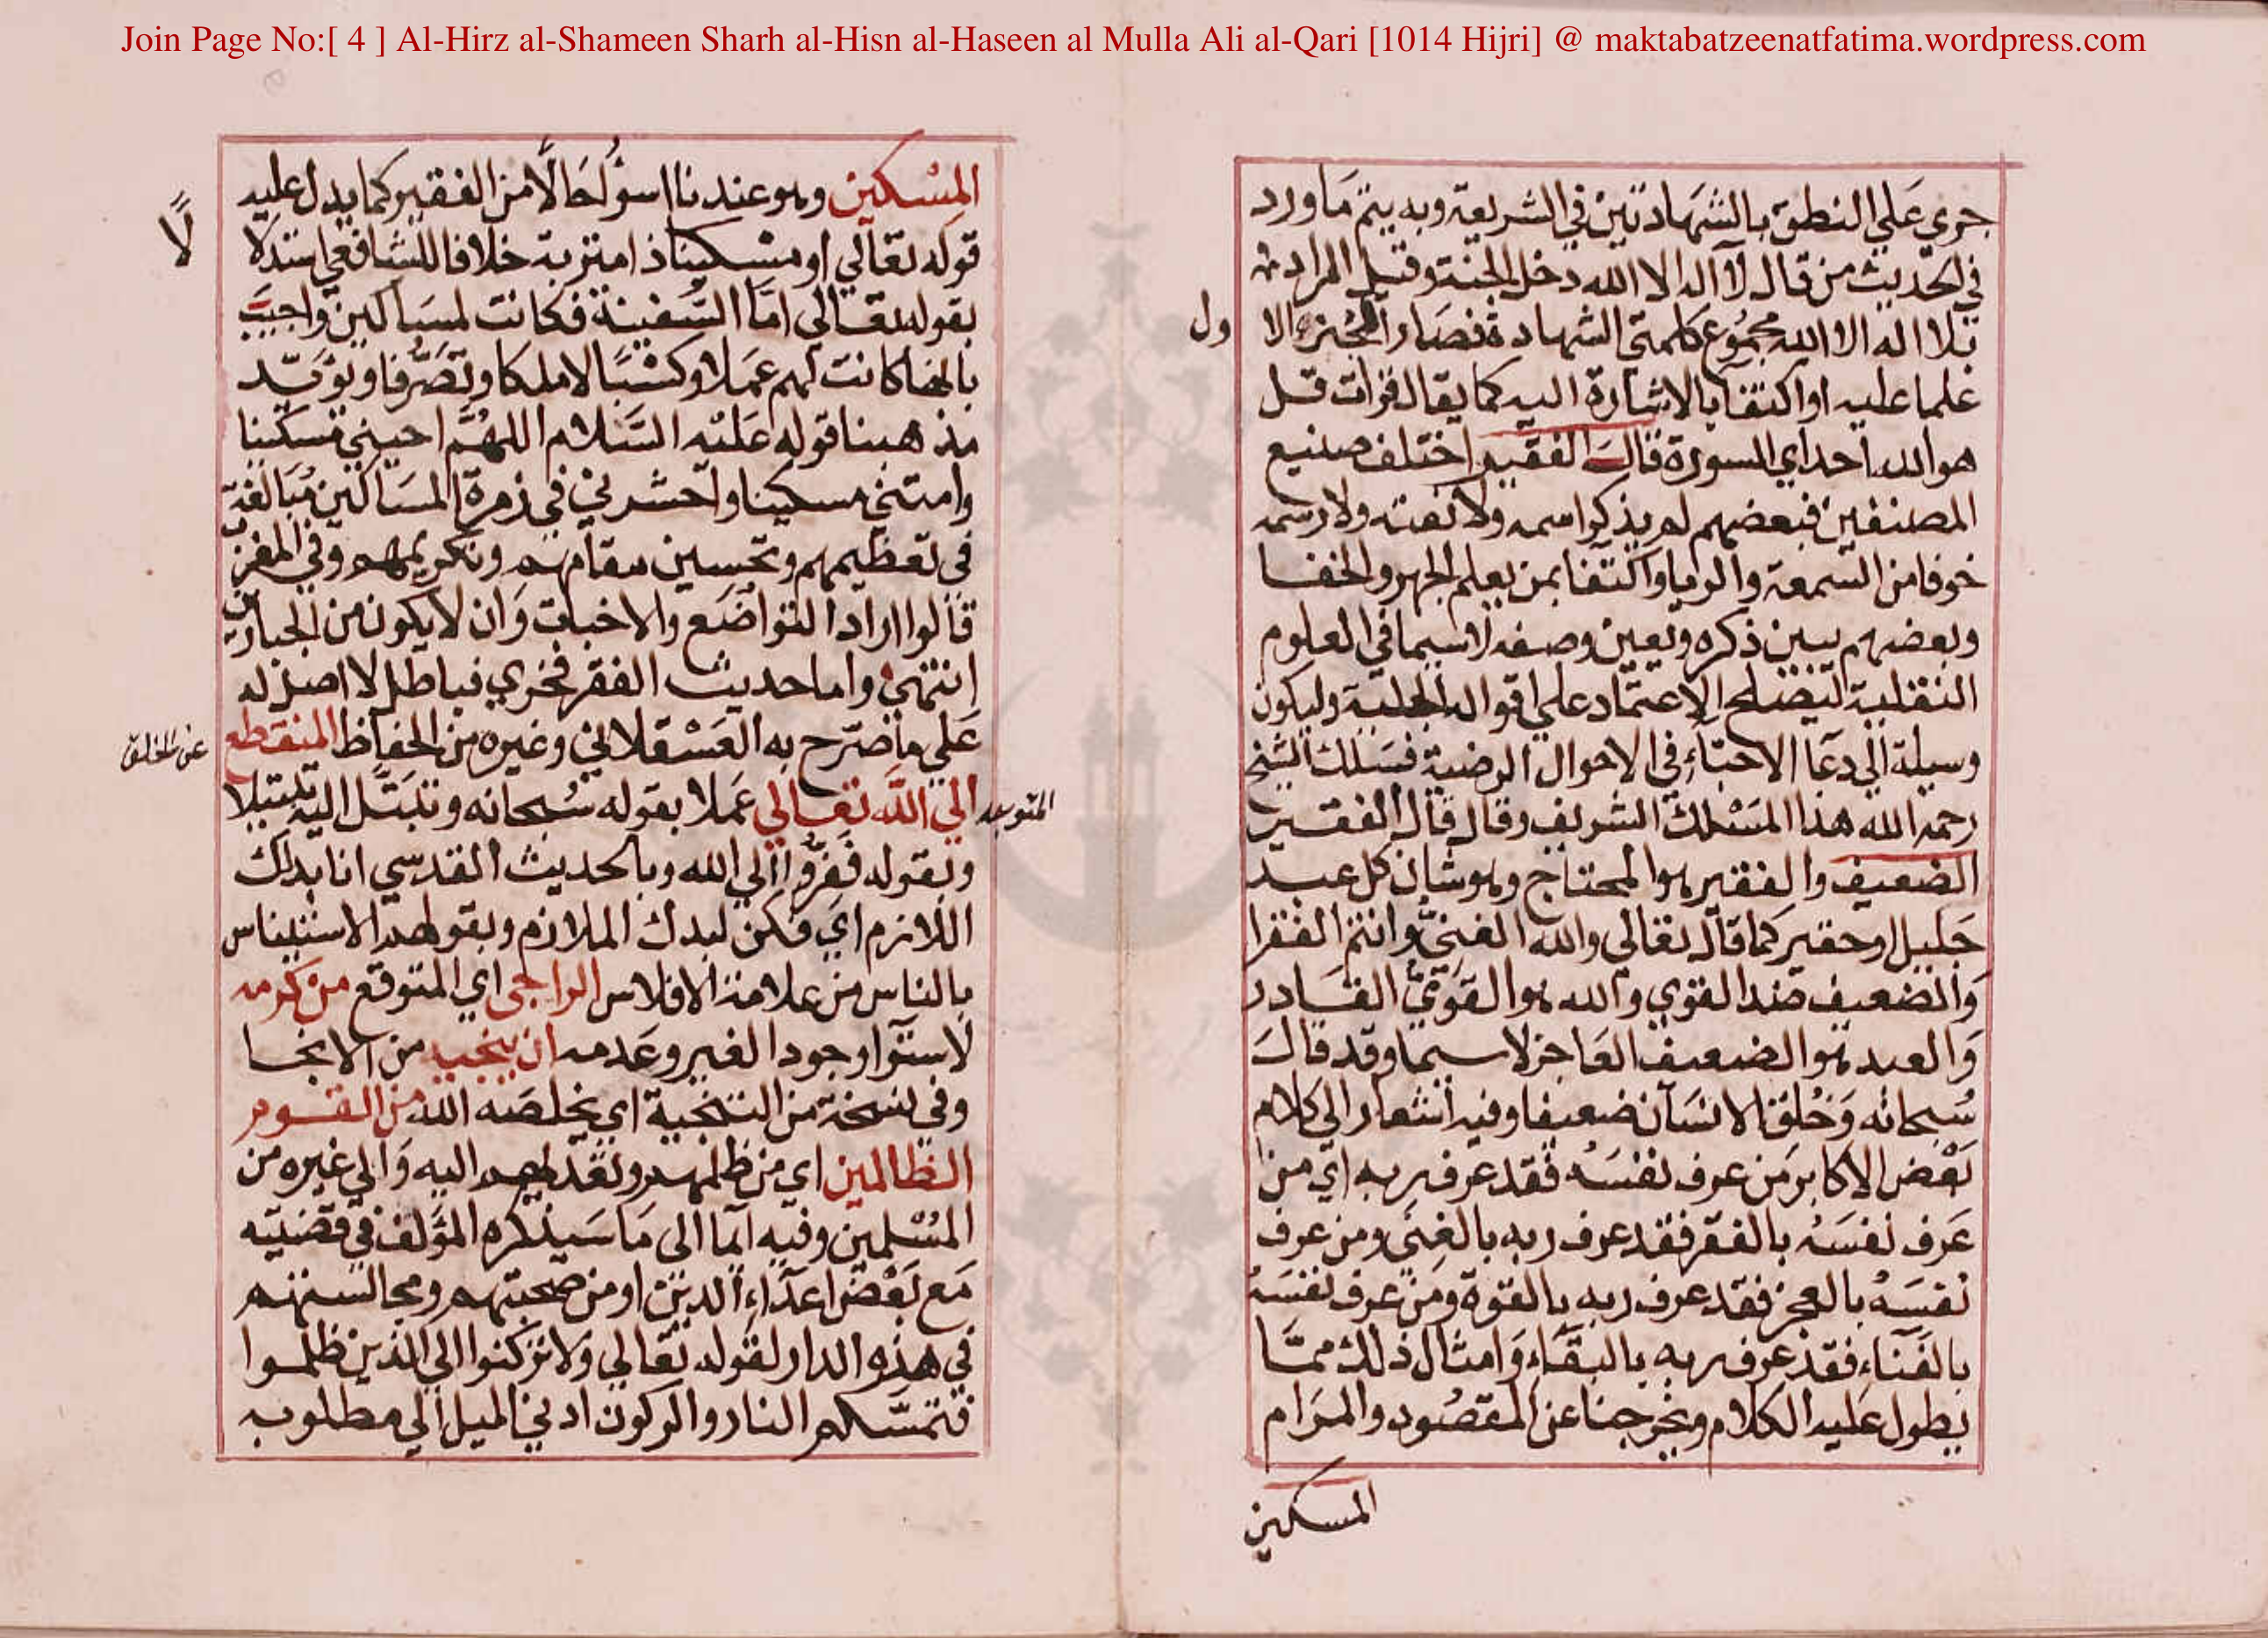 Join Page No:[ 4 ] Al-Hirz al-Shameen Sharh al-Hisn al-Haseen al Mulla Ali al-Qari [1014 Hijri] @ maktabatzeenatfatima.wordpress.com
جري علي النطق بالشهادتين في الشريعة وبه يتم ما ورد
في الحديث من قال لا اله الا الله دخل الجنة وقيل المراد
بلا اله الا الله مجموع كلمتي الشهادة فصار الجزء الا
ول
علما عليه او اكتفا بالاشارة اليه كما يقال قرات قل
هو الله احد اي السورة قال الفقير اختلف صنيع
المصنفين فبعضهم لم يذكر اسمه ولا نعته ولا رسمه
خوفا من السمعة والريا واكتفا بمن يعلم الجهر والخفا
وبعضهم يبين ذكره ويعين وصفه لا سيما في العلوم
النقلية ليصلح الاعتماد علي اقواله الجلية وليكون
وسيلة الي دعا الاحباء في الاحوال الرضية فسلك الشيخ
رحمه الله هذا المسلك الشريف وقال قال الفقير
الضعيف والفقير هو المحتاج وهو شان كل عبد
جليل او حقير كما قال تعالي والله الغني وانتم الفقرا
والضعيف ضد القوي والله هو القوي القادر
والعبد هو الضعيف العاجز لا سيما وقد قال
سبحانه وخلق الانسان ضعيفا وفيه اشعار الي كلام
بعض الاكابر من عرف نفسه فقد عرف ربه اي من
عرف نفسه بالفقر فقد عرف ربه بالغني ومن عرف
نفسه بالعجز فقد عرف ربه بالقوة ومن عرف نفسه
بالفناء فقد عرف ربه بالبقاء وامثال ذلك مما
يطول عليه الكلام ويخرجنا عن المقصود والمرام
المسكين
المسكين وهو عندنا اسؤ حالا من الفقير كما يدل عليه
قوله تعالي او مسكينا ذا متربة خلافا للشافعي استدلا
لا
بقوله تعالي اما السفينة فكانت لمساكين واجيب
بانها كانت لهم عملا وكسبا لا ملكا وتصرفا ويؤيد
مذهبنا قوله عليه السلام اللهم احيني مسكينا
وامتني مسكينا واحشرني في زمرة المساكين مبالغة
في تعظيمهم وتحسين مقامهم وتكريمهم وفي المغرب
قالوا اراد التواضع والاخبات وان لا يكون من الجبارين
انتهي واما حديث الفقر فخري فباطل لا اصل له
علي ما صرح به العسقلاني وغيره من الحفاظ المنقطع
عن الخلق
المتوجه
الي الله تعالي عملا بقوله سبحانه وتبتل اليه تبتيلا
وبقوله ففروا الي الله وبالحديث القدسي انا بدك
اللازم اي فكن لبدك الملازم وبقولهم الاستيناس
بالناس من علامة الافلاس الراجي اي المتوقع من كرمه
لاستوا وجود الغير وعدمه ان ينجيه من الانجا
وفي نسخة من التنجية اي يخلصه الله من القوم
الظالمين اي من ظلمهم وتعديهم اليه والي غيره من
المسلمين وفيه ايما الى ما سيذكره المؤلف في قضيته
مع بعض اعداء الدين او من صحبتهم ومجالستهم
في هذه الدار لقوله تعالي ولا تركنوا الي الذين ظلموا
فتمسكم النار والركون ادني الميل الي مطلوبه